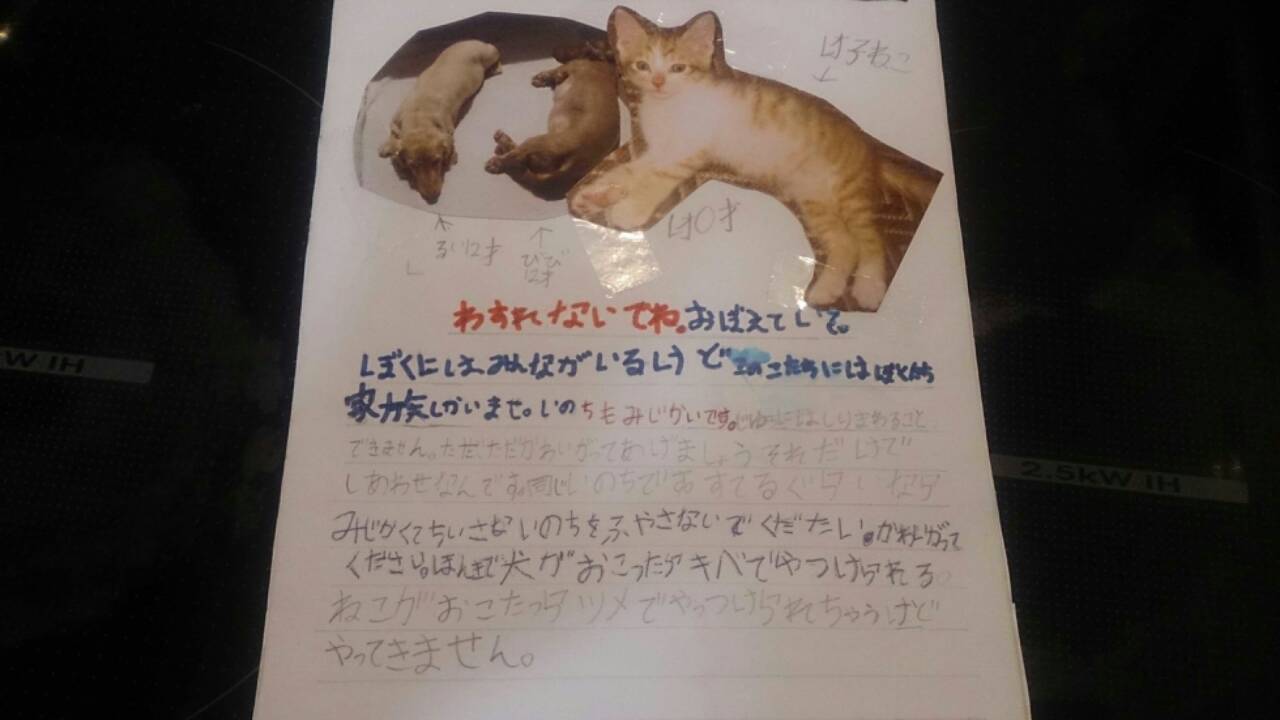 は子ねこ
るい12才
びび
12才
は0才
わすれないでね。おぼえていて。
ぼくにはみんながいるけど このこたちにはぼくたち
家族しかいませ。いのちもみじかいです。じゆうにはしりまわること
できません。ただただかわいがってあげましょうそれだけで
しあわせなんです。同じいのちです すてるぐらいなら
みじかくてちいさないのちをふやさないでくだたい。かわいがって
ください。ほんきで犬がおこったらキバでやつけられる
ねこがおこたったらツメでやっつけられちゃうけど
やってきません。
W IH
2.5kW IH